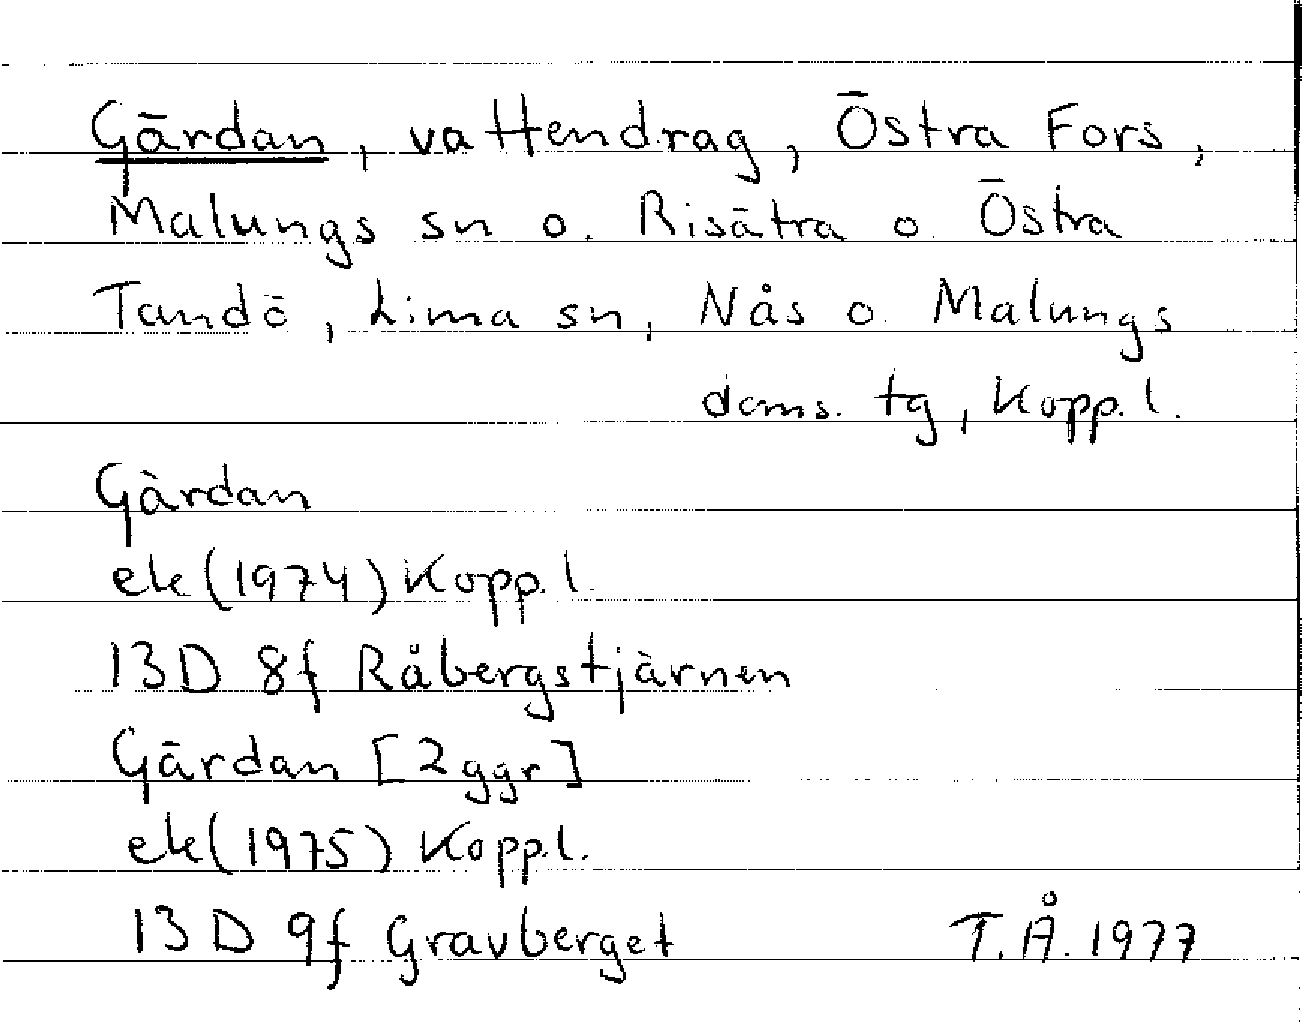 Gärdan, vattendrag, Östra Fors,
Malungs sn o. Risätra o. Östra
Tandö, Lima sn, Nås o. Malungs
doms. tg, Kopp. l.
Gärdan
ek (1974) Kopp. l.
13D 8f Råbergstjärnen
Gärdan [2 ggr]
ek (1975) Kopp. l.
13D 9f Gravberget T.Å. 1977